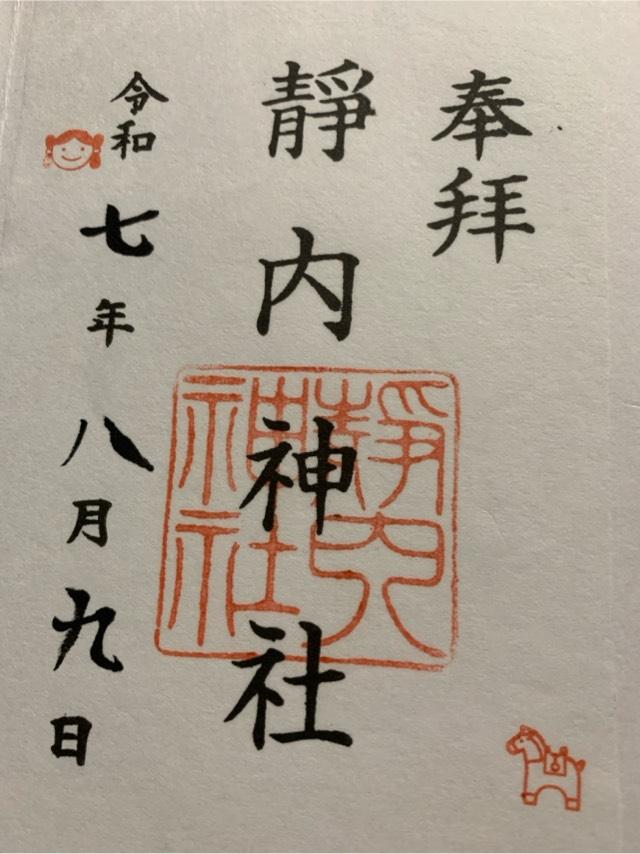 奉拝
靜内神社
靜内
神社
令和七年八月九日